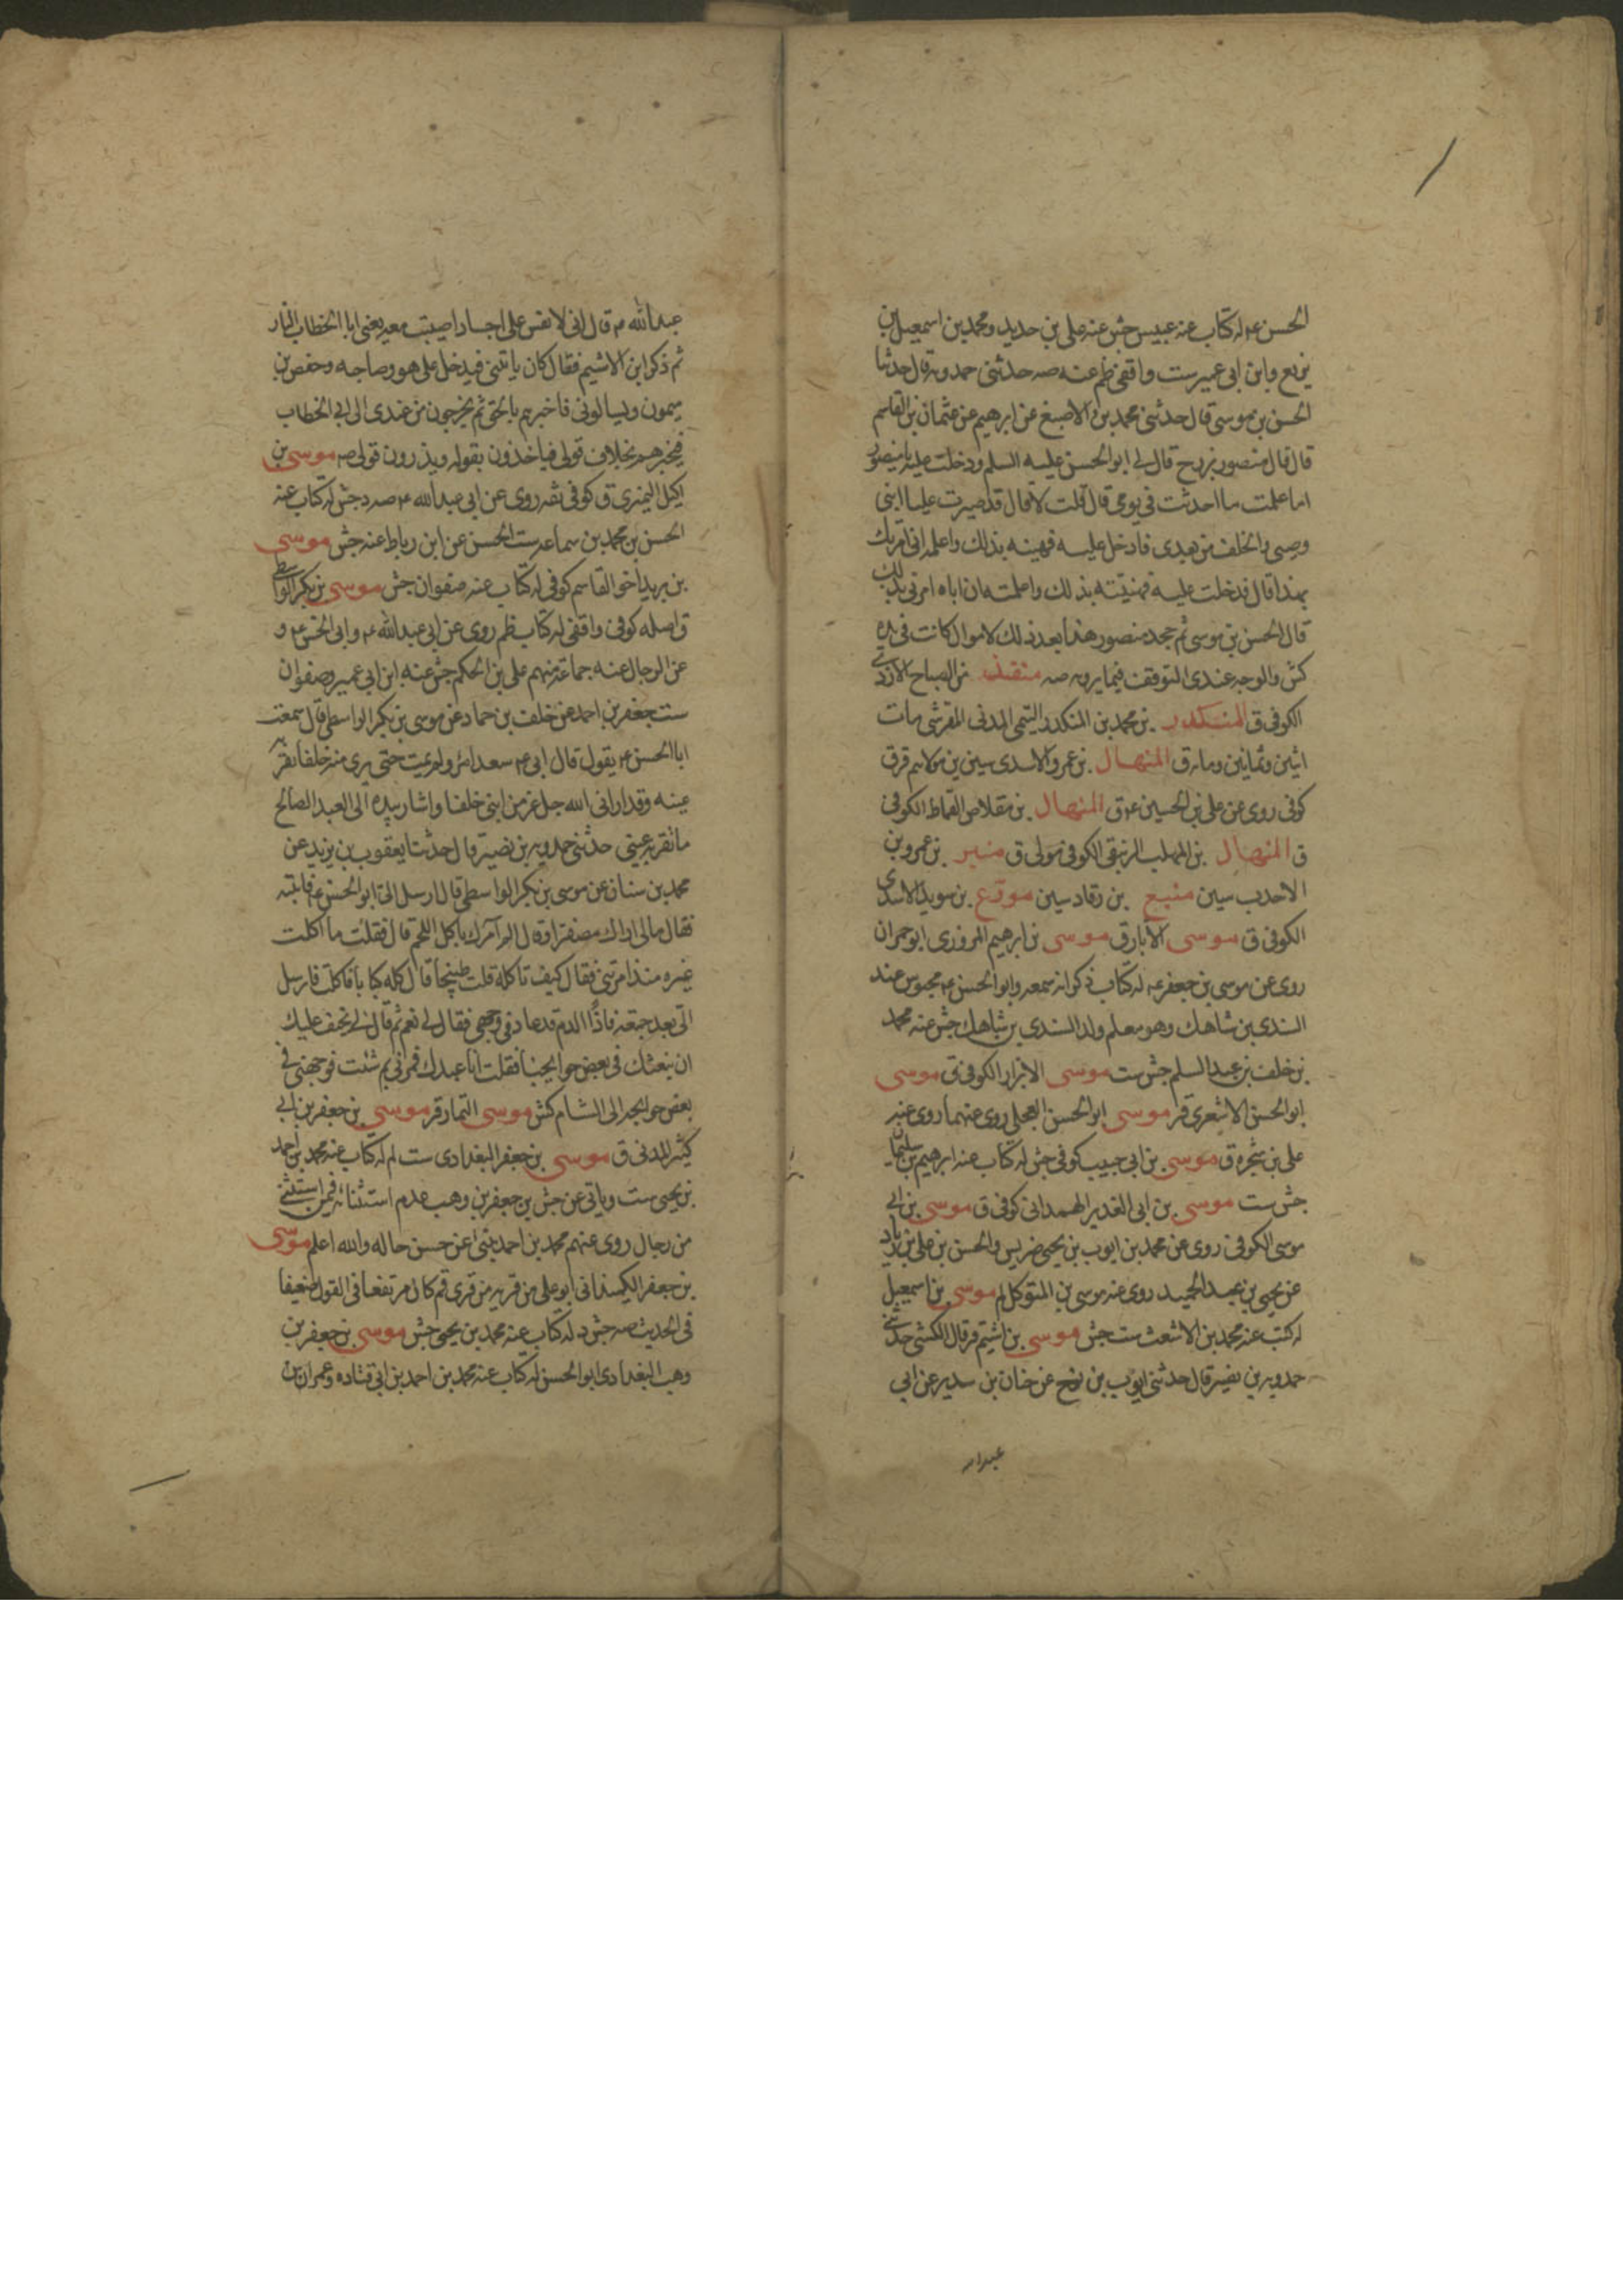 الحسن ع له كتاب عنه عبيس جش عنه علي بن حديد ومحمد بن اسمعيل بن
بزيع وابن ابي عمير ست واقفي ظم عنه صه حدثني حمدويه قال حدثنا
الحسن بن موسى قال حدثني محمد بن الاصبغ عن ابرهيم عن عثمان بن القاسم
قال قال منصور بزرج قال لي ابو الحسن عليه السلم ودخلت عليه يا منصور
اما علمت ما احدثت في يومي قال قلت لا قال قد صيرت عليا ابني
وصيي والخلف من بعدي فادخل عليه فهنيه بذلك واعلمه اني امرتك
بهذا قال فدخلت عليه فهنيته بذلك واعلمته ان اباه امرني بذلك
قال الحسن بن موسى ثم جحد منصور هذا بعد ذلك لاموال كانت في يده
كش والوجه عندي التوقف فيما يرويه صه منقذ بن الصباح الازدي
الكوفي ق المنكدر بن محمد بن المنكدر التيمي المدني القرشي مات
اثنين وثمانين ومايه ق المنهال بن عمرو الاسدي سين ين مولاهم قر ق
كوفي روى عن علي بن الحسين ع ق المنهال بن مقلاص القماط الكوفي
ق المنهال بن المهلب الزنبقي الكوفي مولى ق منير بن عمرو بن
الاحدب سين منيع بن رقاد سين موقع بن سويد الاسدي
الكوفي ق موسى الأبار ق موسى بن ابرهيم المروزي ابو حمران
روى عن موسى بن جعفر ع له كتاب ذكر انه سمعه وابو الحسن ع محبوس عند
السندي بن شاهك وهو معلم ولد السندي بن شاهك جش عنه محمد
بن خلف بن عبد السلم جش ست موسى الابزار الكوفي ق موسى
ابو الحسن الاشعري قر موسى ابو الحسن العجلي روى عنهما روى عنه
علي بن شجره ق موسى بن ابي حبيب كوفي جش له كتاب عنه ابرهيم بن سليمان
جش ست موسى بن ابي الغدير الهمداني كوفي ق موسى بن ابي
موسى الكوفي روى عن محمد بن ايوب بن يحيى ضريس والحسن بن علي بن زياد
عن يحيى بن عبد الحميد روى عنه موسى بن المتوكل لم موسى بن اسمعيل
له كتب عنه محمد بن الاشعث ست جش موسى بن اشيم قر قال الكشي حدثني
حمدويه بن نصير قال حدثني ايوب بن نوح عن حنان بن سدير عن ابي
عبد الله
عبد الله ع قال اني لانفس على اجساد اصيبت معه يعني ابا الخطاب النار
ثم ذكر ابن الاشيم فقال كان ياتيني فيدخل علي هو وصاحبه وحفص بن
ميمون ويسالوني فاخبرهم بالحق ثم يخرجون من عندي الى ابي الخطاب
فيخبرهم بخلاف قولي فياخذون بقوله ويذرون قولي صه موسى بن
اكيل النميري ق كوفي ثقه روى عن ابي عبد الله ع صه د جش له كتاب عنه
الحسن بن محمد بن سماعه ست الحسن عن ابن رباط عنه جش موسى
بن بريد اخو القاسم كوفي له كتاب عنه صفوان جش موسى بن بكر الواسطي
ق اصله كوفي واقفي له كتاب ظم روى عن ابي عبد الله ع وابي الحسن ع و
عن الرجال عنه جماعة منهم علي بن الحكم جش عنه ابن ابي عمير وصفوان
ست جعفر بن احمد عن خلف بن حماد عن موسى بن بكر الواسطي قال سمعت
ابا الحسن ع يقول قال ابي ع سعد امرؤ لم يمت حتى يرى منه خلفا تقر به
عينه وقد اراني الله جل عز من ابني خلفا واشار بيده الى العبد الصالح
ما تقر به عيني حدثني حمدويه بن نصير قال حدثنا يعقوب بن يزيد عن
محمد بن سنان عن موسى بن بكر الواسطي قال ارسل الي ابو الحسن ع فاتيته
فقال مالي اراك مصفرا وقال الم آمرك باكل اللحم قال فقلت ما اكلت
غيره منذ امرتني فقال كيف تاكله قلت طبيخا قال كله كبابا فاكلت فارسل
الي بعد جمعه فاذا الدم قد عاد في وجهي فقال لي نعم ثم قال لي يخف عليك
ان نبعثك في بعض حوايجنا فقلت انا عبدك فمرني بم شئت فوجهني في
بعض حوايجه الى الشام كش موسى التمار قر موسى بن جعفر بن ابي
كثير المدني ق موسى بن جعفر البغدادي ست لم له كتاب عنه محمد بن احمد
بن يحيى ست وياتي عن جش بن جعفر بن وهب عدم استثنائه فيمن استثنى
من رجال روى عنهم محمد بن احمد ينبئ عن حسن حاله والله اعلم موسى
بن جعفر الكميذاني ابو علي من قريه من قرى قم كان مرتفعا في القول ضعيفا
في الحديث صه جش د له كتاب عنه محمد بن يحيى جش موسى بن جعفر بن
وهب البغدادي ابو الحسن له كتاب عنه محمد بن احمد بن ابي قتاده وعمران بن